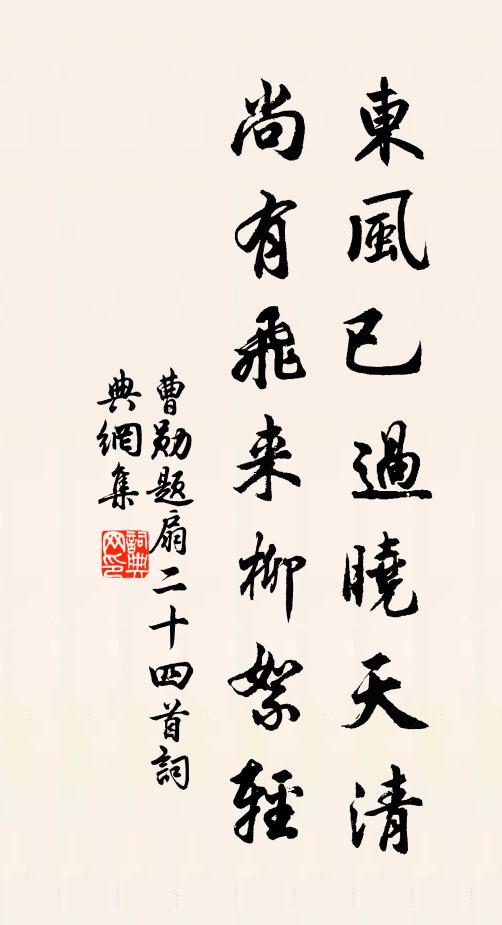 東風已過曉天清
尚有飛来柳絮輕
曹勛題扇二十四首詞
典網集
詞典
网印